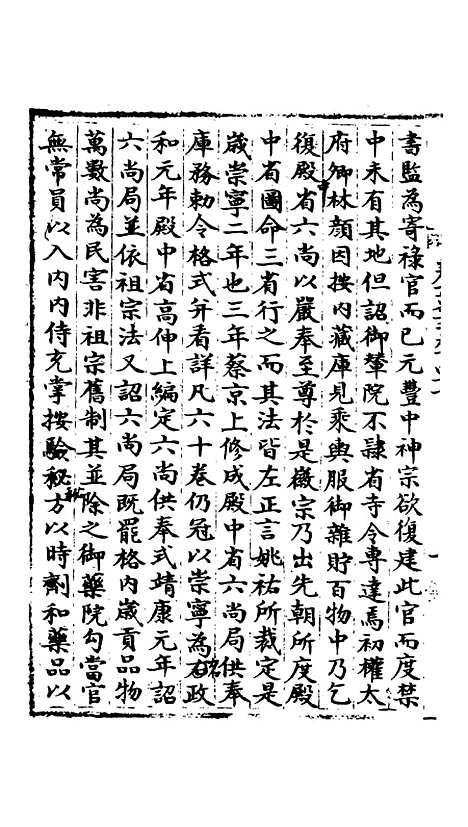 書監為寄祿官而已元豐中神宗欲復建此官而度禁
中未有其地但詔御輦院不隸省寺令專達焉初權太
府卿林顏因按內藏庫見乘輿服御雜貯百物中乃乞
復殿中省六尚以嚴奉至尊於是徽宗乃出先朝所度殿
中省圖命三省行之而其法皆左正言姚祐所裁定是
歲崇寧二年也三年蔡京上修成殿中省六尚局供奉
庫務勅令格式并看詳凡六十卷仍冠以崇寧為名政
和元年殿中省高伸上編定六尚供奉式靖康元年詔
六尚局並依祖宗法又詔六尚局既罷格內歲貢品物
萬數尚為民害非祖宗舊制其並除之御藥院勾當官
無常員以入內內侍充掌按驗秘方以時劑和藥品以